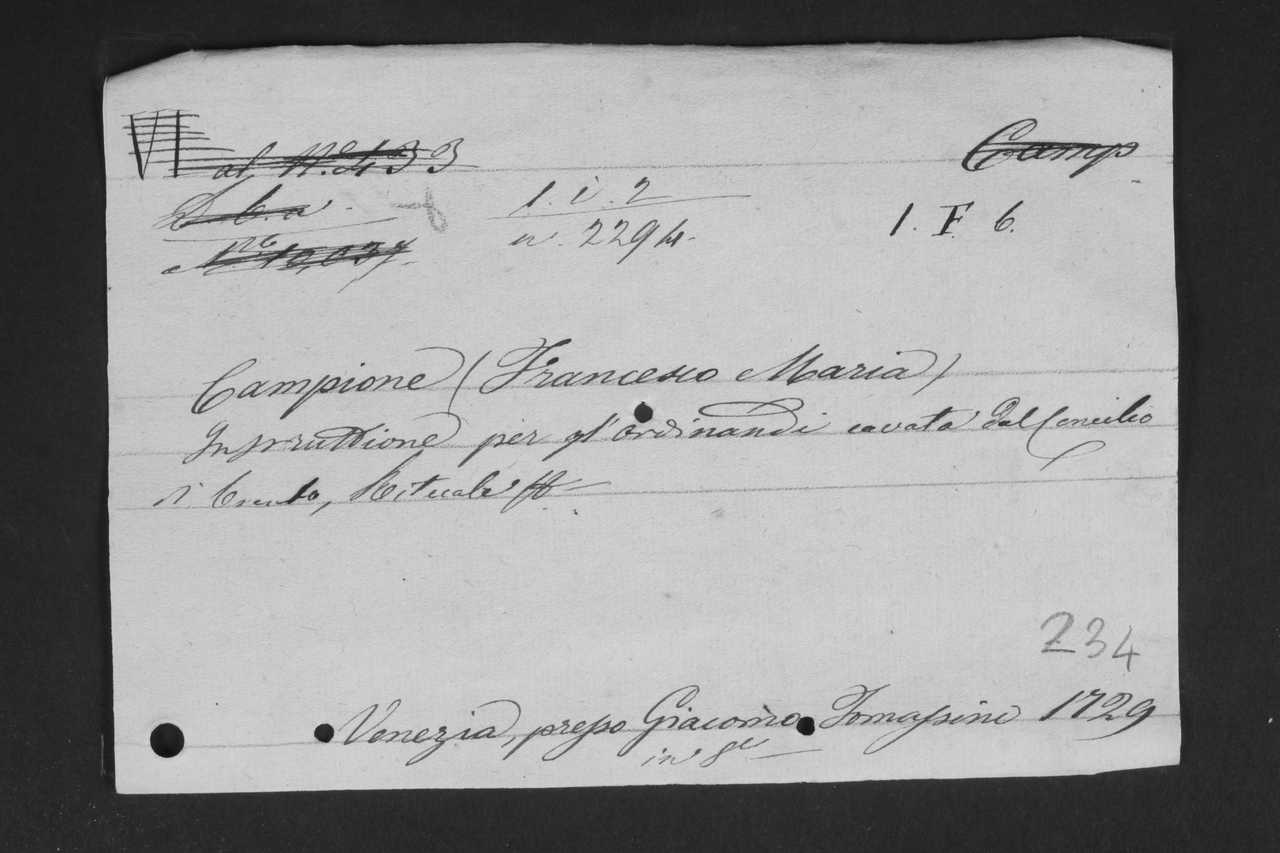 VI al N.º 433
Camp
L. b. a
1. i. 2
1. F. 6.
Nº 10,037
n. 2294.
Campione (Francesco Maria)
Instruttione per gl'ordinandi cavata dal Concilio
di Trento, Rituale
234
Venezia, presso Giacomo Tomassini 1729
in 8º